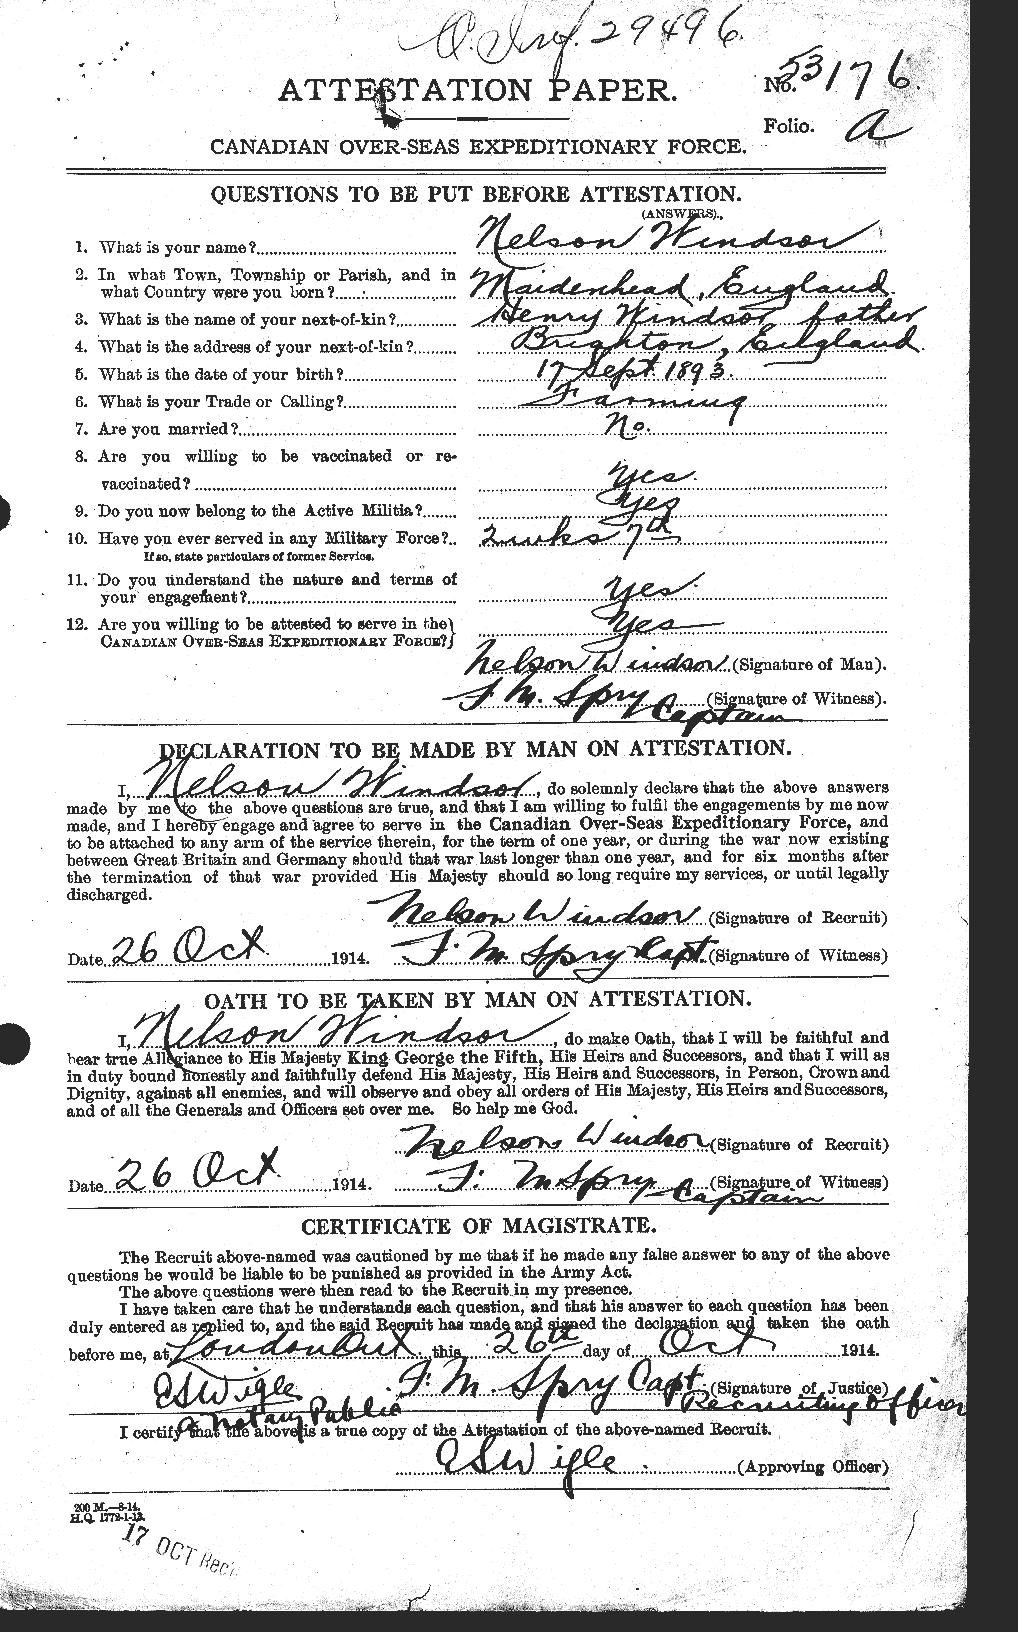 O. Inf. 29496.
ATTESTATION PAPER.
No. 53176.
Folio. A
CANADIAN OVER-SEAS EXPEDITIONARY FORCE.
QUESTIONS TO BE PUT BEFORE ATTESTATION.
(ANSWERS).
1. What is your name? Nelson Windsor
2. In what Town, Township or Parish, and in
what Country were you born? Maidenhead, England.
3. What is the name of your next-of-kin? Henry Windsor father
4. What is the address of your next-of-kin? Brighton, England.
5. What is the date of your birth? 17 Sept. 1893.
6. What is your Trade or Calling? Farming
7. Are you married? No.
8. Are you willing to be vaccinated or re-
vaccinated? Yes.
9. Do you now belong to the Active Militia? Yes
10. Have you ever served in any Military Force? 2 wks 7th
If so, state particulars of former Service.
11. Do you understand the nature and terms of
your engagement? Yes.
12. Are you willing to be attested to serve in the
CANADIAN OVER-SEAS EXPEDITIONARY FORCE? Yes
Nelson Windsor (Signature of Man).
F. M. Spry Captain (Signature of Witness).
DECLARATION TO BE MADE BY MAN ON ATTESTATION.
I, Nelson Windsor, do solemnly declare that the above answers
made by me to the above questions are true, and that I am willing to fulfil the engagements by me now
made, and I hereby engage and agree to serve in the Canadian Over-Seas Expeditionary Force, and
to be attached to any arm of the service therein, for the term of one year, or during the war now existing
between Great Britain and Germany should that war last longer than one year, and for six months after
the termination of that war provided His Majesty should so long require my services, or until legally
discharged.
Nelson Windsor (Signature of Recruit)
Date 26 Oct. 1914. F. M. Spry Capt. (Signature of Witness)
OATH TO BE TAKEN BY MAN ON ATTESTATION.
I, Nelson Windsor, do make Oath, that I will be faithful and
bear true Allegiance to His Majesty King George the Fifth, His Heirs and Successors, and that I will as
in duty bound honestly and faithfully defend His Majesty, His Heirs and Successors, in Person, Crown and
Dignity, against all enemies, and will observe and obey all orders of His Majesty, His Heirs and Successors,
and of all the Generals and Officers set over me. So help me God.
Nelson Windsor (Signature of Recruit)
Date 26 Oct 1914. F. M. Spry Captain (Signature of Witness)
CERTIFICATE OF MAGISTRATE.
The Recruit above-named was cautioned by me that if he made any false answer to any of the above
questions he would be liable to be punished as provided in the Army Act.
The above questions were then read to the Recruit in my presence.
I have taken care that he understands each question, and that his answer to each question has been
duly entered as replied to, and the said Recruit has made and signed the declaration and taken the oath
before me, at London Ont this 26th day of Oct 1914.
F. M. Spry Capt. (Signature of Justice)
ESWigle Recruiting Officer
a Notary Public
I certify that the above is a true copy of the Attestation of the above-named Recruit.
ESWigle (Approving Officer)
200 M.—8-14.
H.Q. 1772-1-13.
17 OCT Rec'd